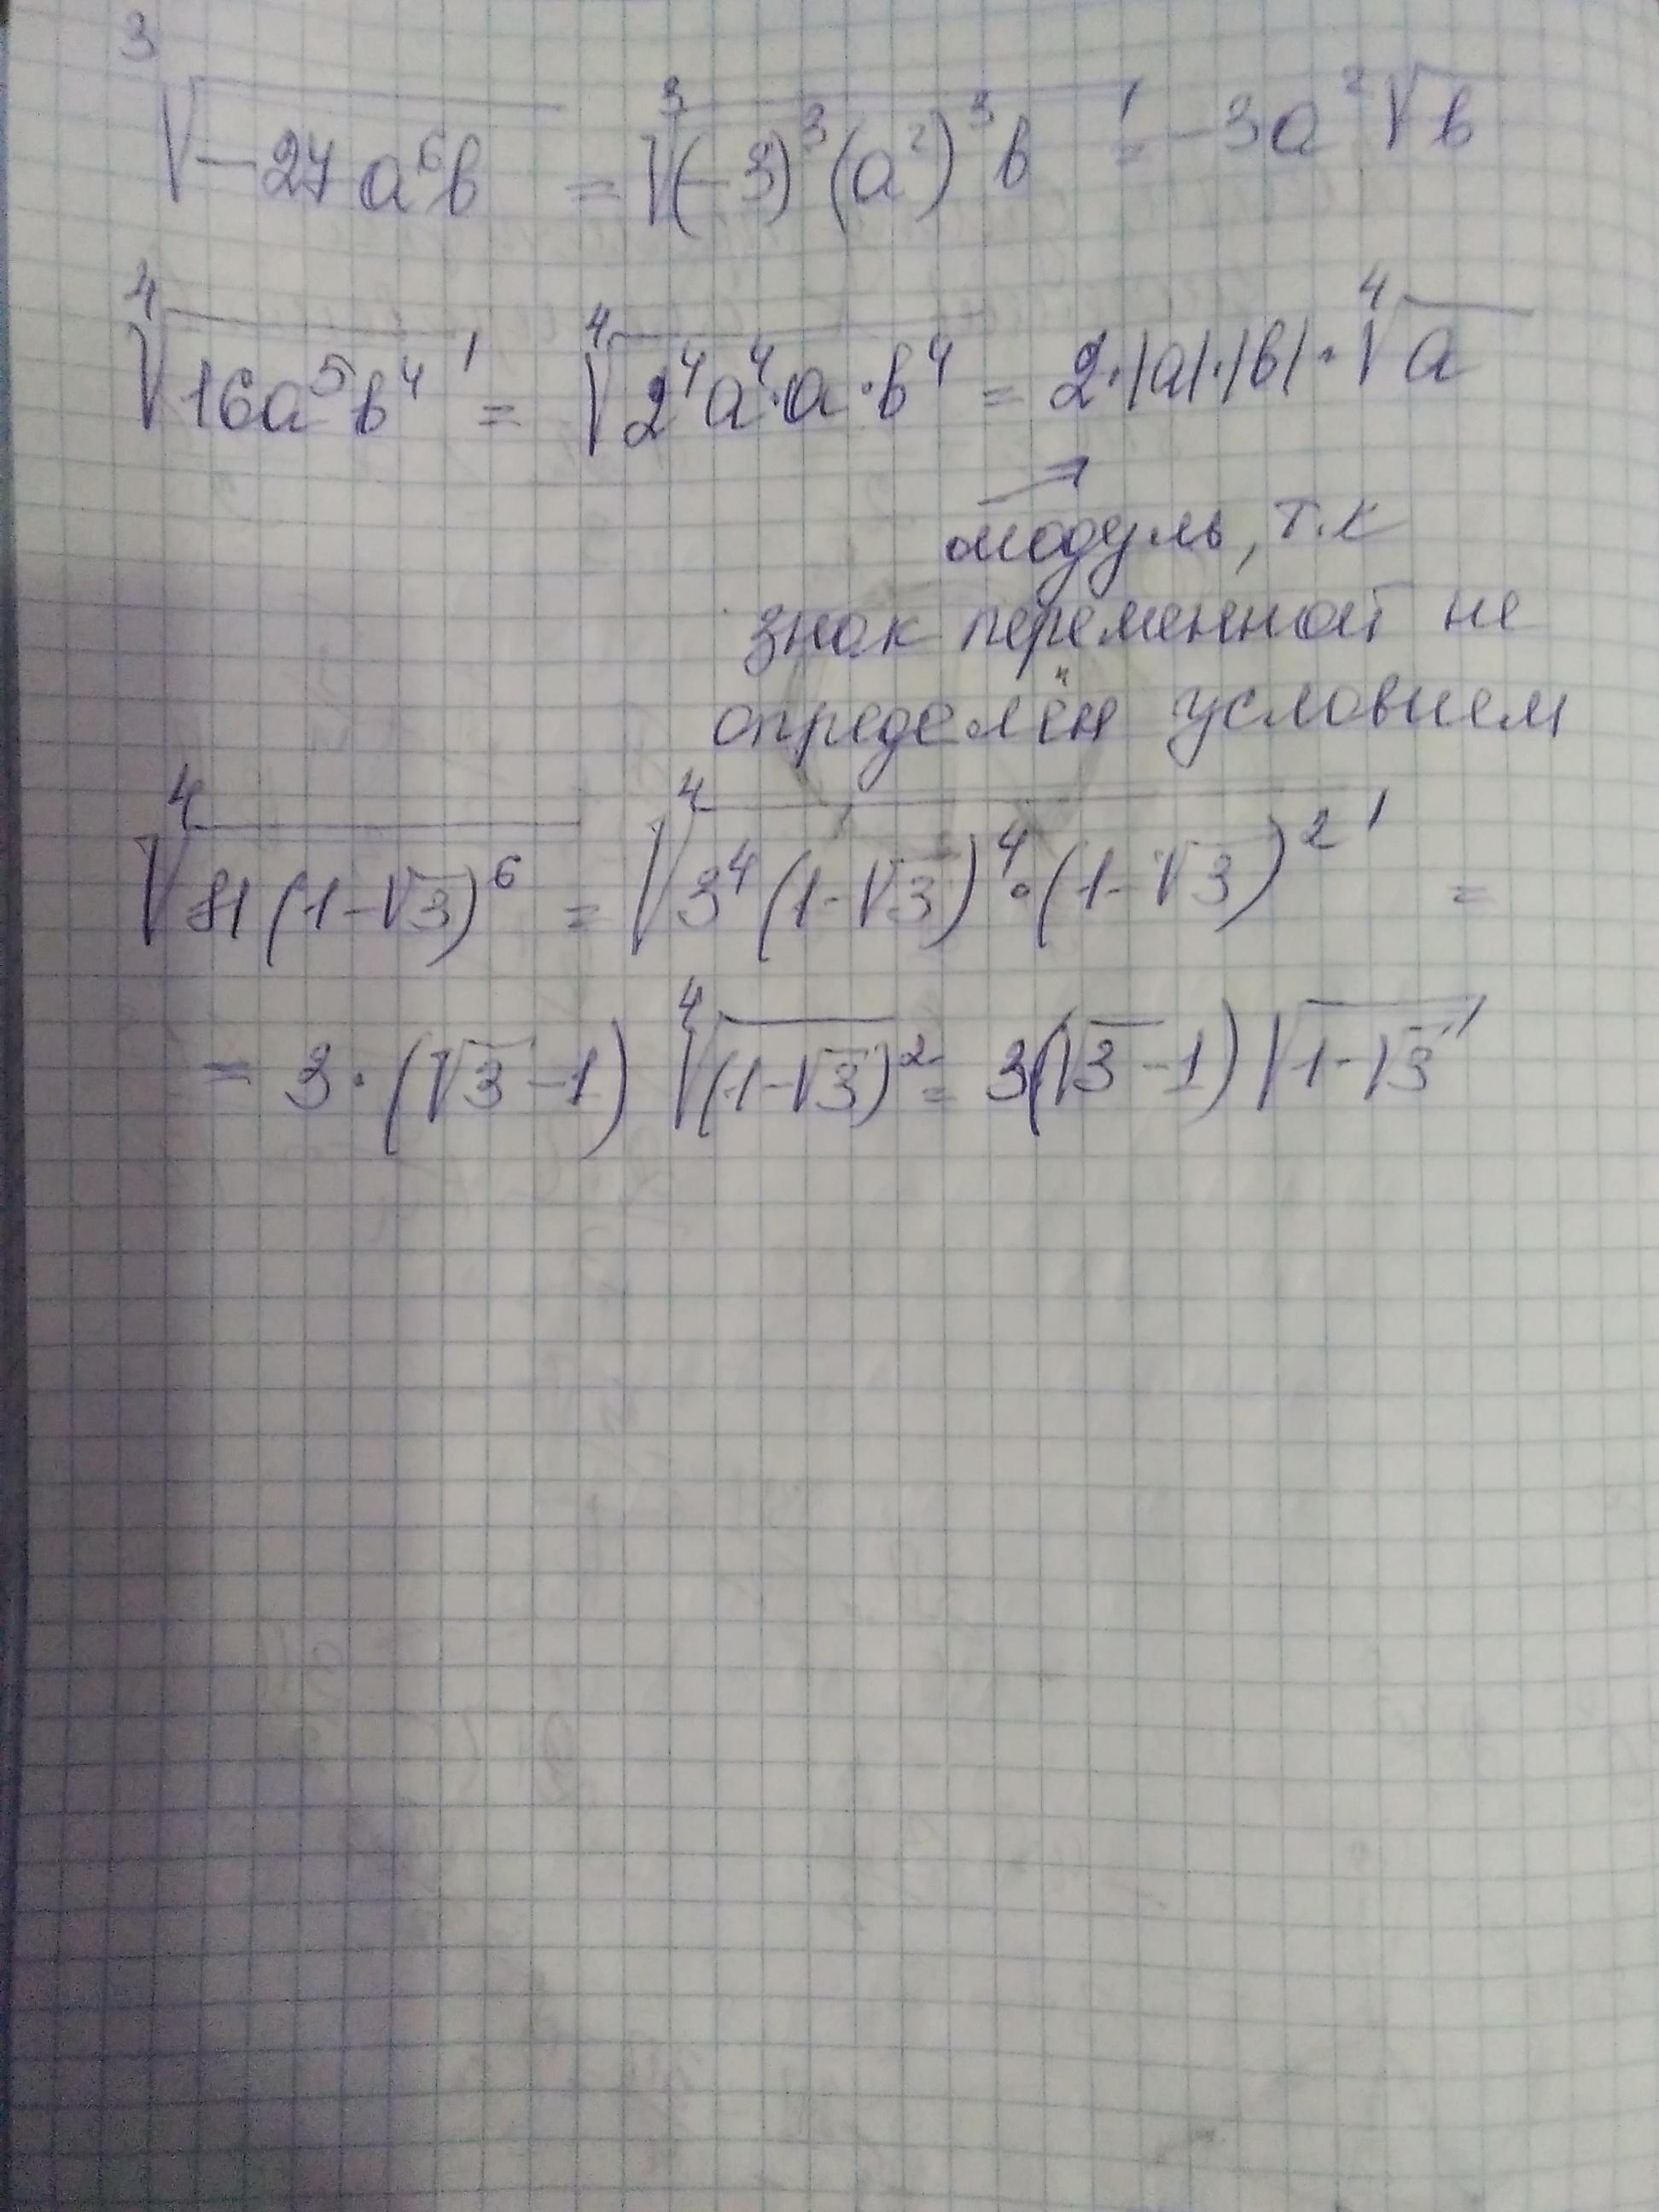 ∛(-27a⁶b) = ∛((-3)³(a²)³b) = -3a²√b
∜(16a⁵b⁴) = ∜(2⁴a⁴·a·b⁴) = 2·|a|·|b|·∜a
модуль, т.к
знак переменной не
определён условием
∜(81(1-√3)⁶) = ∜(3⁴(1-√3)⁴·(1-√3)²) =
= 3·(√3-1) ∜((1-√3)²) = 3(√3-1)√(1-√3)